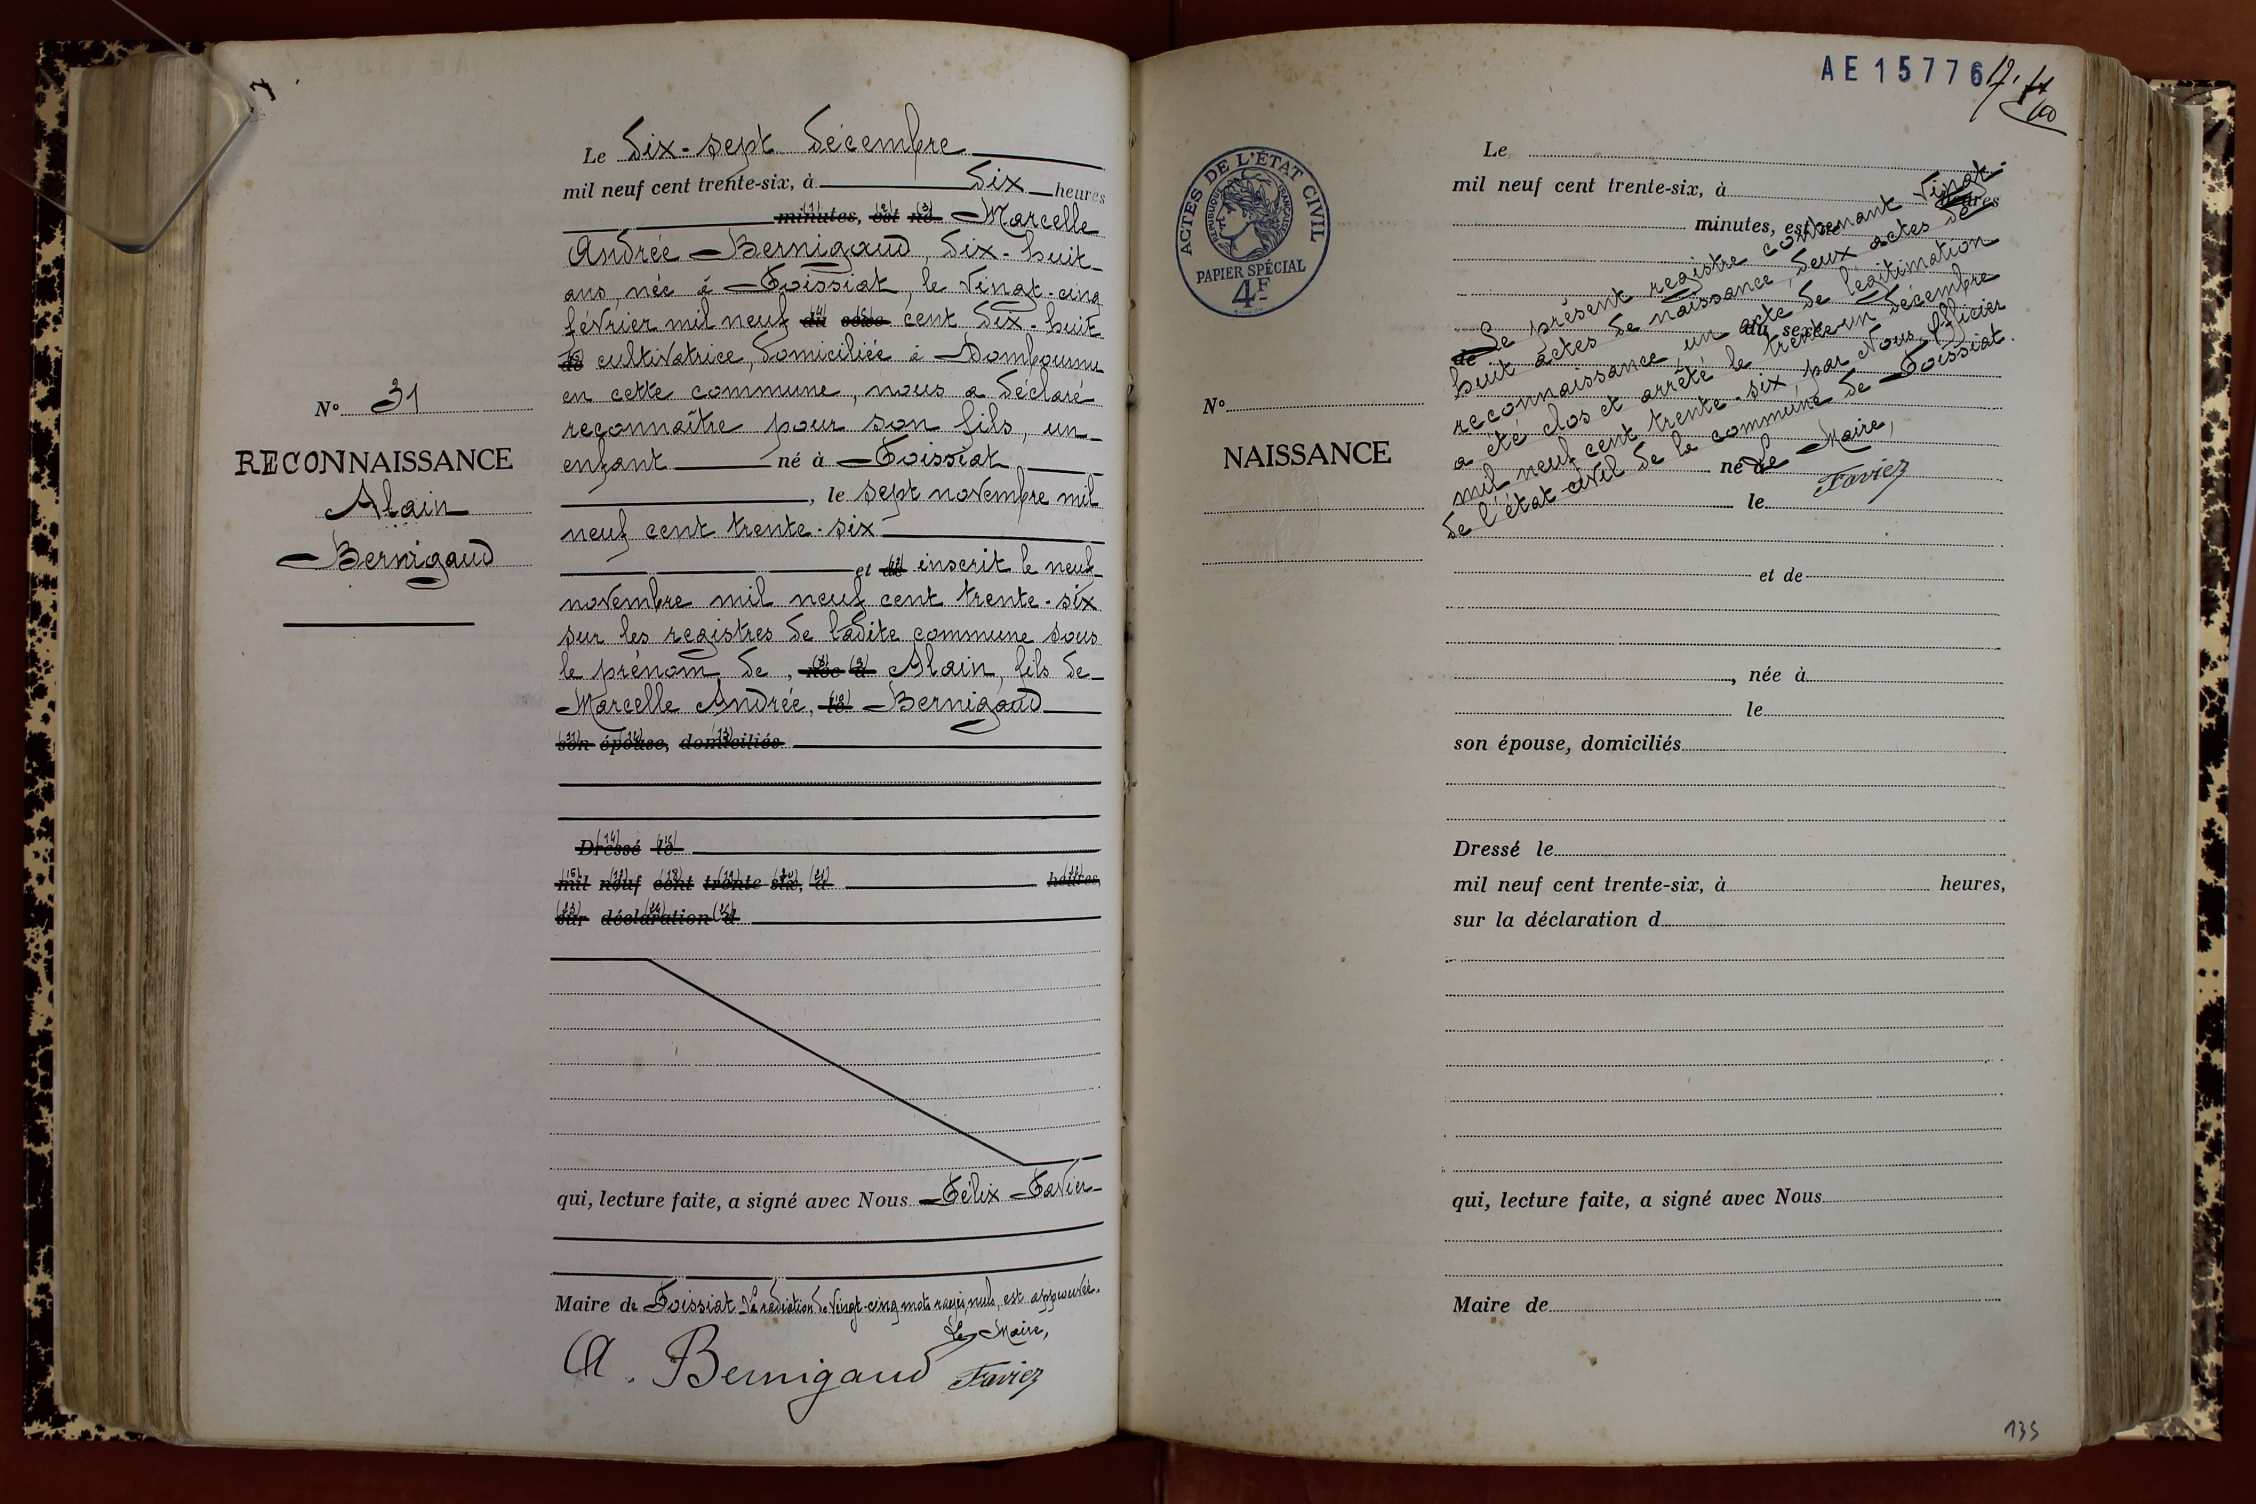 Le dix-sept décembre
mil neuf cent trente-six, à dix heures
minutes, est né Marcelle
Andrée Bernigaud, dix-huit
ans, née à Foissiat, le vingt-cinq
février mil neuf du sexe cent dix-huit
de cultivatrice, domiciliée à
en cette commune, nous a déclaré
reconnaître pour son fils, un
enfant né à Foissiat
, le sept novembre mil
neuf cent trente-six
et de inscrit le neuf
novembre mil neuf cent trente-six
sur les registres de ladite commune sous
le prénom de, née à Alain, fils de
Marcelle Andrée, le Bernigaud
son épouse, domiciliés
Dressé le
mil neuf cent trente-six, à heures,
sur déclaration d
qui, lecture faite, a signé avec Nous Félix Favier
Maire de Foissiat. La radiation de vingt-cinq mots rayés nuls, est approuvée.
Le Maire,
A. Bernigaud Favier
N° 31
RECONNAISSANCE
Alain
Bernigaud
AE15776
ACTES DE L'ÉTAT CIVIL
RÉPUBLIQUE FRANÇAISE
PAPIER SPÉCIAL
4F
N°
NAISSANCE
Le
mil neuf cent trente-six, à heures
minutes, est né
du sexe
de
Le présent registre contenant vingt-
huit actes de naissance, deux actes de
reconnaissance, un acte de légitimation
a été clos et arrêté le trente-un décembre
mil neuf cent trente-six, par Nous, Officier
de l'état-civil de la commune de Foissiat.
Le Maire,
Favier
né de
le
et de
, née à
le
son épouse, domiciliés
Dressé le
mil neuf cent trente-six, à heures,
sur la déclaration d
qui, lecture faite, a signé avec Nous
Maire de
135